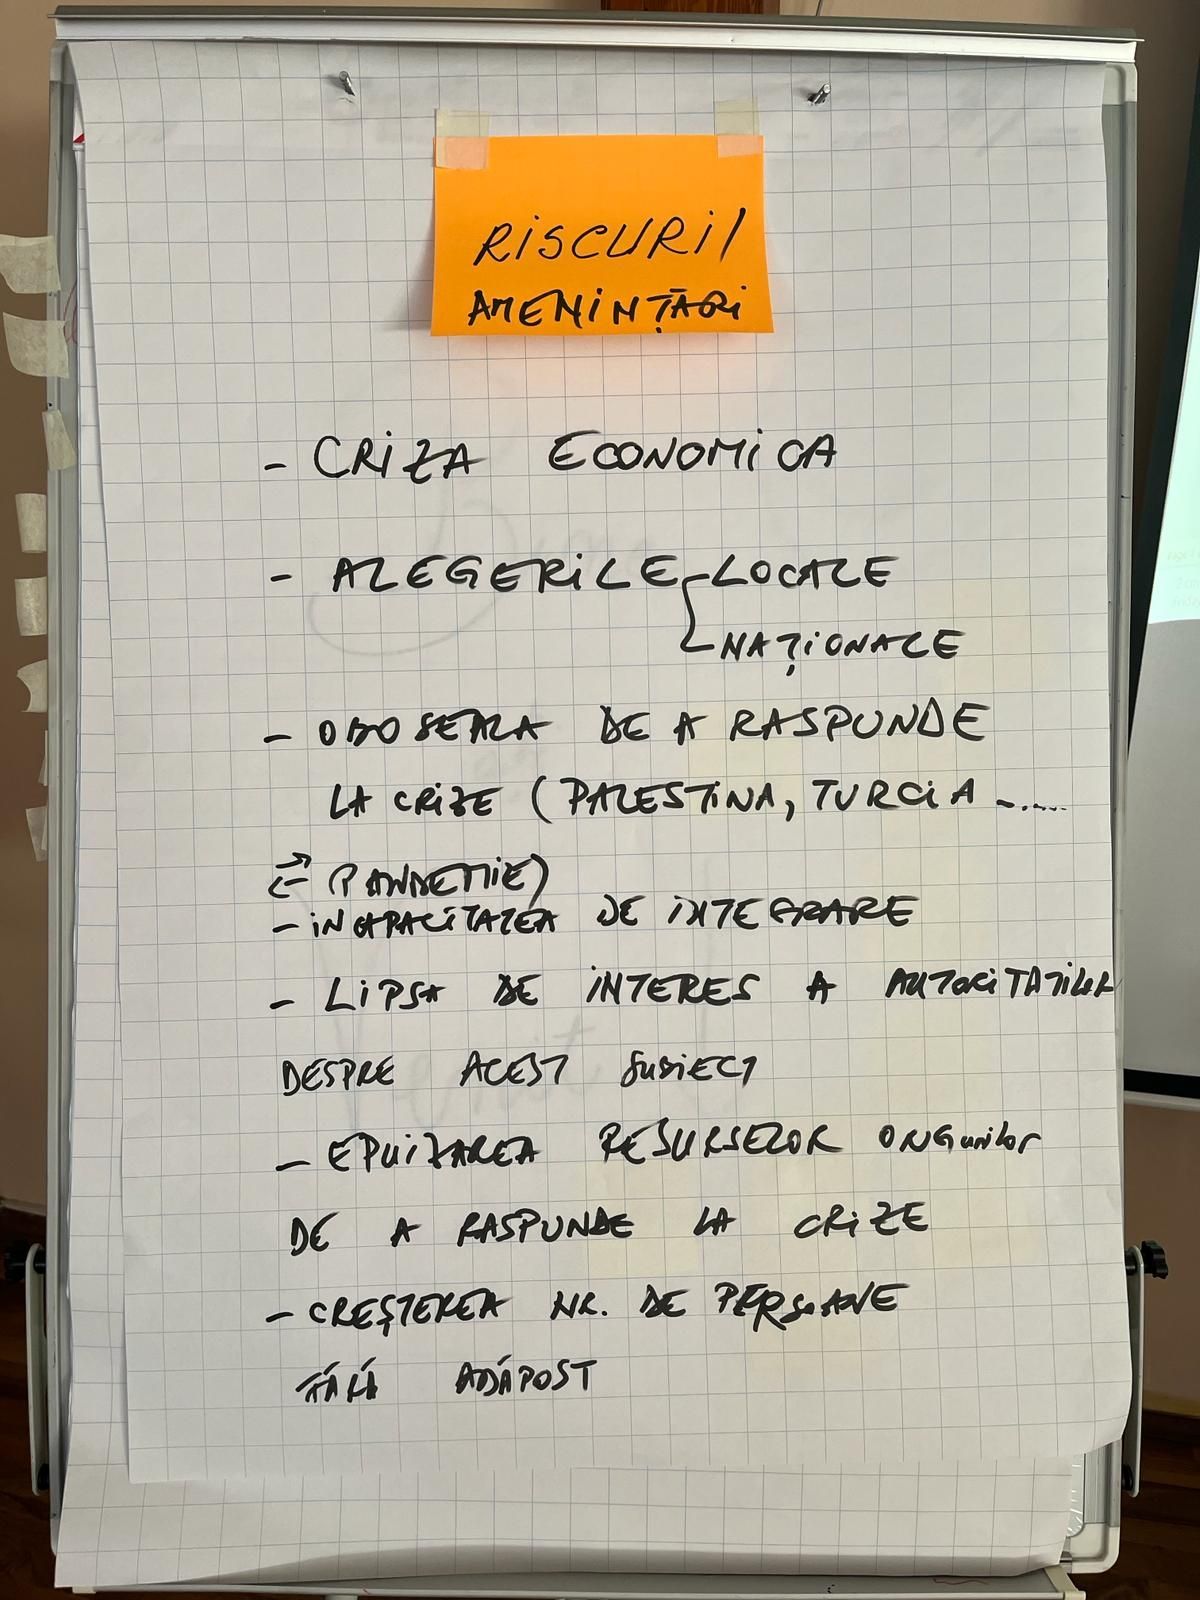 RISCURI/
AMENINȚĂRI
- CRIZA ECONOMICA
- ALEGERILE LOCALE
NAȚIONALE
- OBOSEALA DE A RASPUNDE
LA CRIZE (PALESTINA, TURCIA ......
⇄ PANDEMIE)
- INCAPACITATEA DE INTEGRARE
- LIPSA DE INTERES A AUTORITATILOR
DESPRE ACEST SUBIECT
- EPUIZAREA RESURSELOR ONGurilor
DE A RASPUNDE LA CRIZE
- CREȘTEREA NR. DE PERSOANE
FĂRĂ ADĂPOST